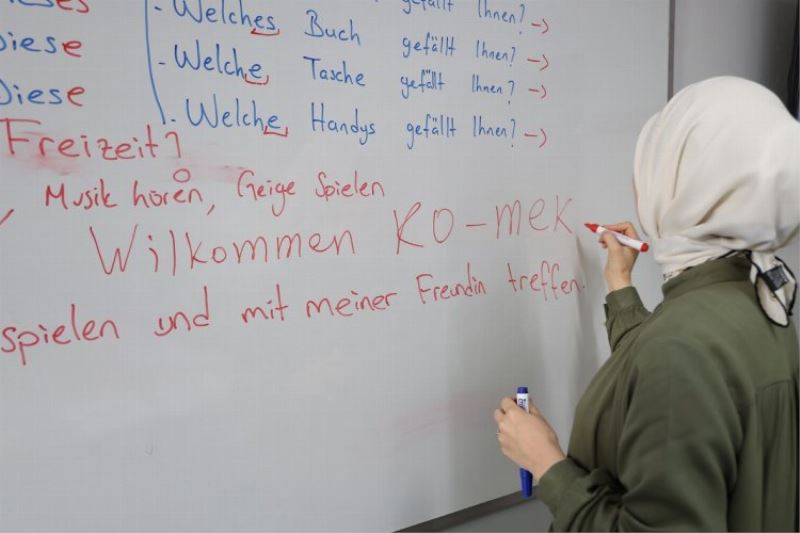 Dieses
- Welches Buch gefällt Ihnen? →
Diese
- Welche Tasche gefällt Ihnen? →
Diese
- Welche Handys gefällt Ihnen? →
Freizeit?
Musik hören, Geige Spielen
Wilkommen KO-MEK
spielen und mit meiner Freundin treffen.